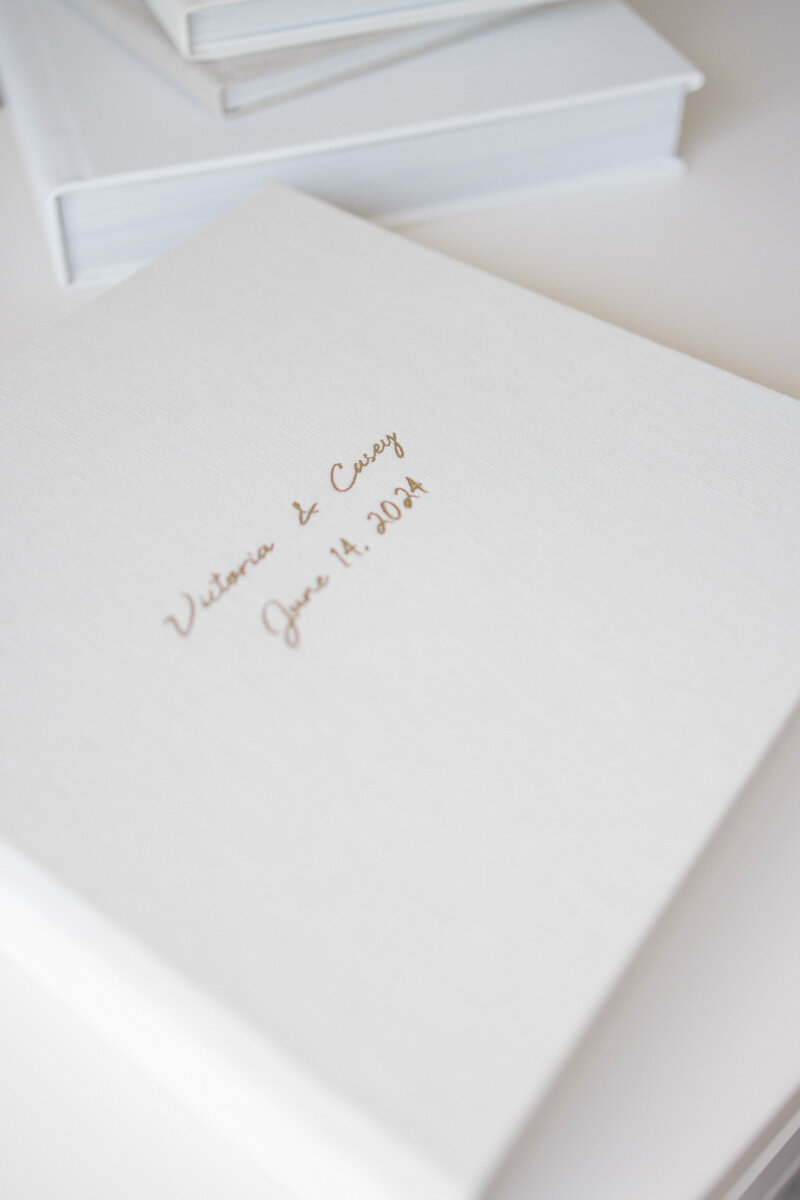 Victoria & Casey
June 14, 2024